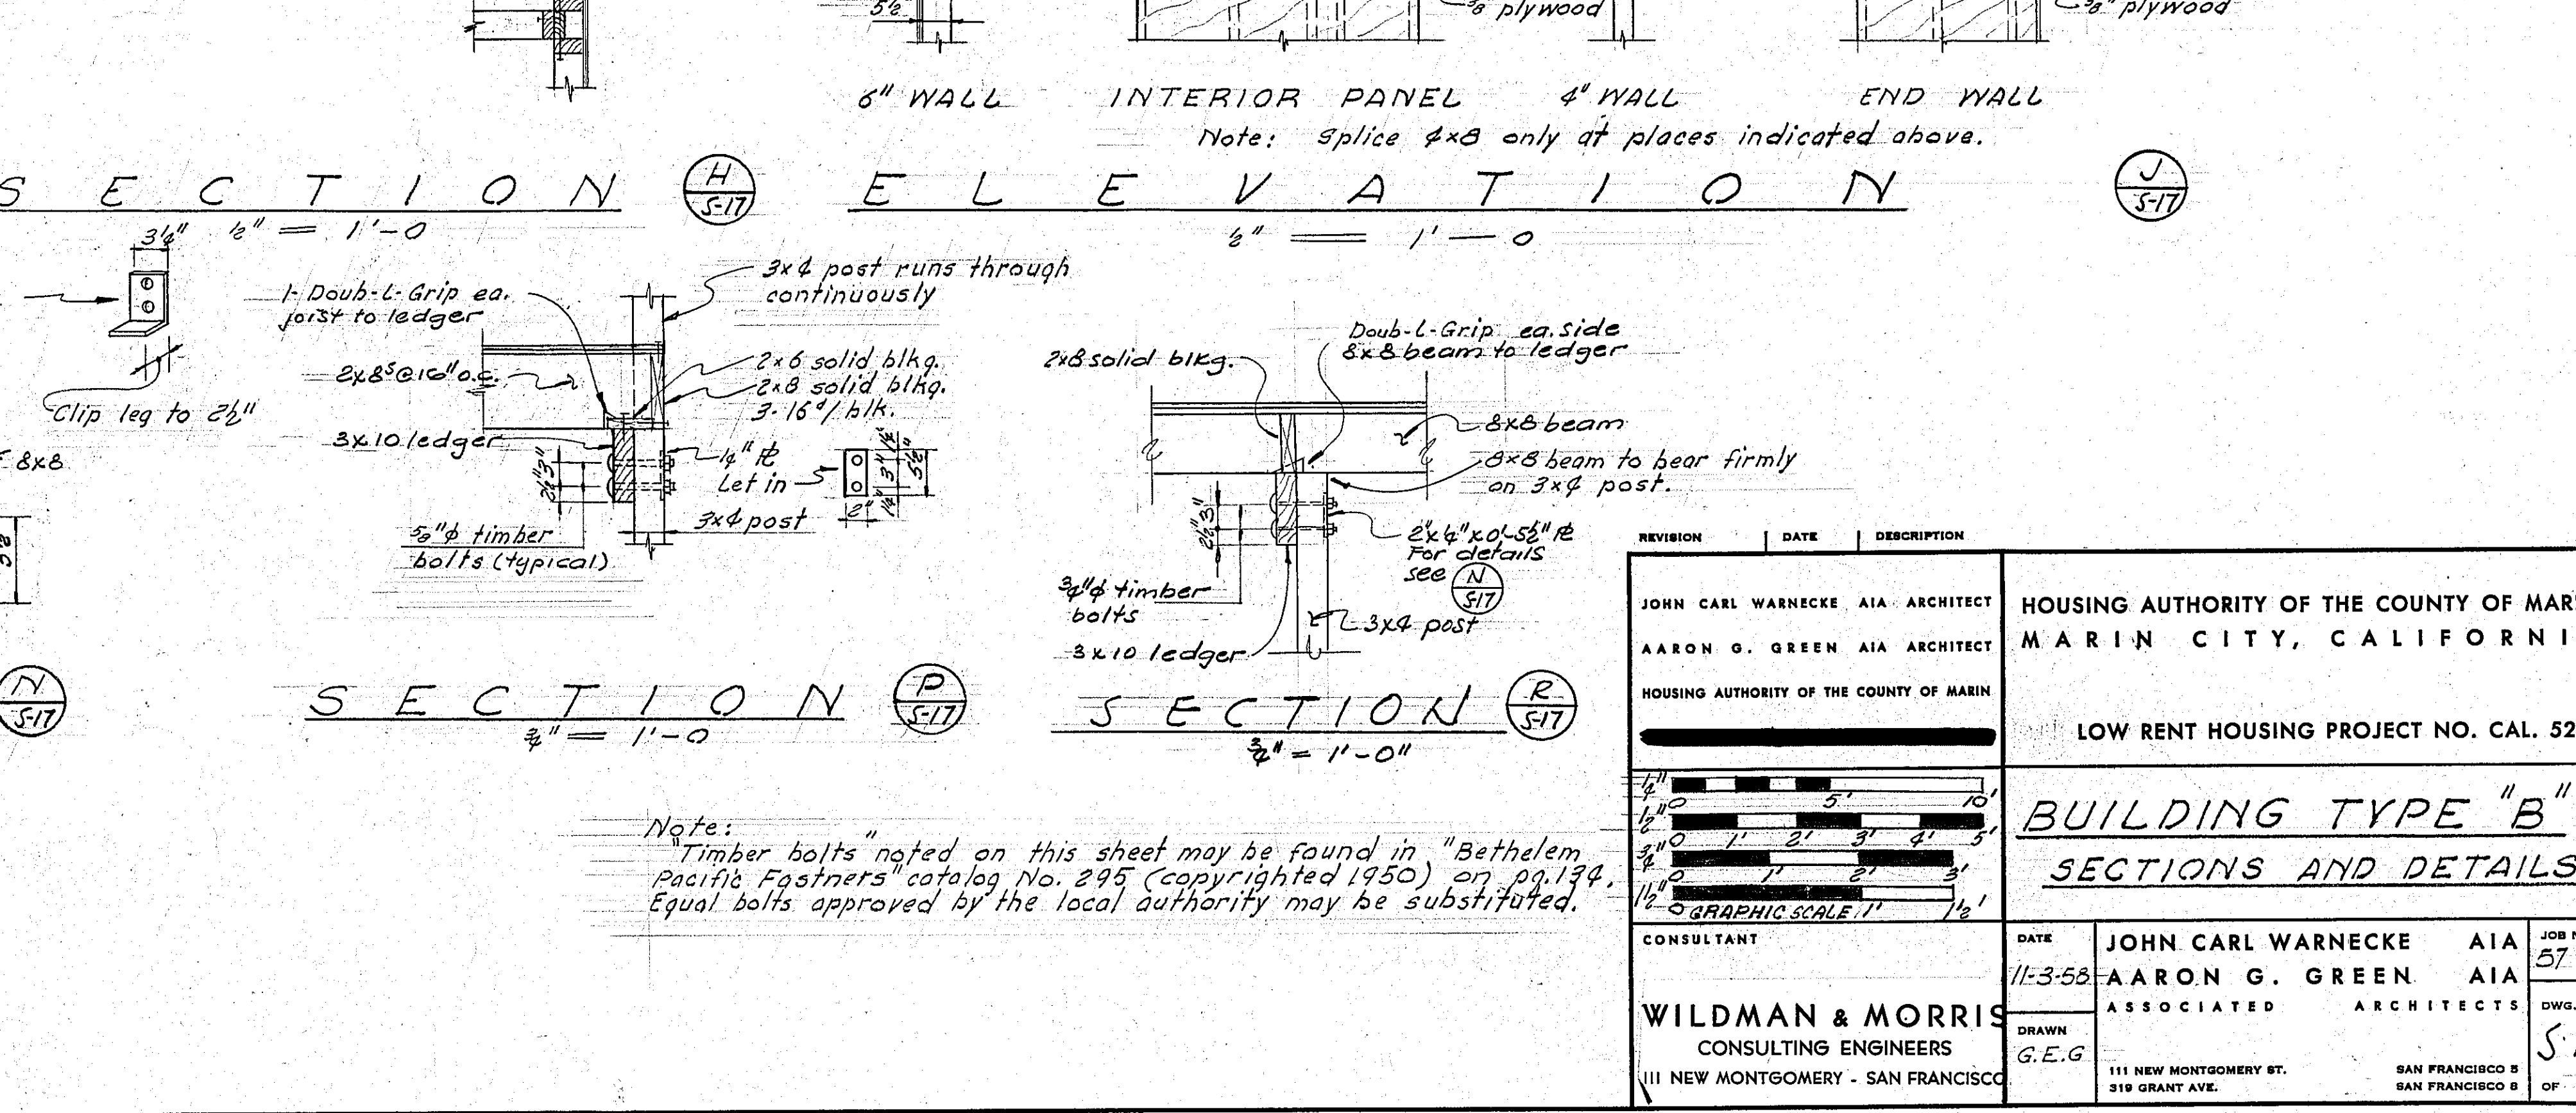 5½
⅜" plywood
⅜" plywood
6" WALL
INTERIOR PANEL
4" WALL
END WALL
Note: Splice 4x8 only at places indicated above.
SECTION
H
S-17
½" = 1'-0
ELEVATION
J
S-17
½" = 1'-0
3¼"
Clip leg to 2½"
8x8
N
S-17
1-Doub-L-Grip ea.
joist to ledger
3x4 post runs through
continuously
2x8s @ 16" o.c.
2x6 solid blkg.
2x8 solid blkg.
3-16d/blk.
3x10 ledger
¼" ⅊
Let in
2½" 3"
1¼" 3" 1¼"
5½"
2"
3x4 post
⅝"ϕ timber
bolts (typical)
SECTION
P
S-17
¾" = 1'-0
2x8 solid blkg.
Doub-L-Grip ea. side
8x8 beam to ledger
8x8 beam
8x8 beam to bear firmly
on 3x4 post.
2½" 3"
2"x¼"x0'-5½" ⅊
For details
see N
S-17
¾"ϕ timber
bolts
3x4 post
3x10 ledger
SECTION
R
S-17
¾" = 1'-0"
Note:
"Timber bolts" noted on this sheet may be found in "Bethelem
Pacific Fastners" catalog No. 295 (copyrighted 1950) on pg.134.
Equal bolts approved by the local authority may be substituted.
REVISION DATE DESCRIPTION
JOHN CARL WARNECKE AIA ARCHITECT
AARON G. GREEN AIA ARCHITECT
HOUSING AUTHORITY OF THE COUNTY OF MARIN
HOUSING AUTHORITY OF THE COUNTY OF MAR
MARIN CITY, CALIFORNI
LOW RENT HOUSING PROJECT NO. CAL. 52
¼" 0 5' 10'
½" 0 1' 2' 3' 4' 5'
¾" 0 1' 2' 3'
1½" 0 GRAPHIC SCALE 1' 1½'
BUILDING TYPE "B"
SECTIONS AND DETAILS
CONSULTANT
WILDMAN & MORRIS
CONSULTING ENGINEERS
111 NEW MONTGOMERY - SAN FRANCISCO
DATE
11-3-58
DRAWN
G.E.G
JOHN CARL WARNECKE AIA
AARON G. GREEN AIA
ASSOCIATED ARCHITECTS
111 NEW MONTGOMERY ST. SAN FRANCISCO 5
319 GRANT AVE. SAN FRANCISCO 8
JOB N
57
DWG.
S-
OF